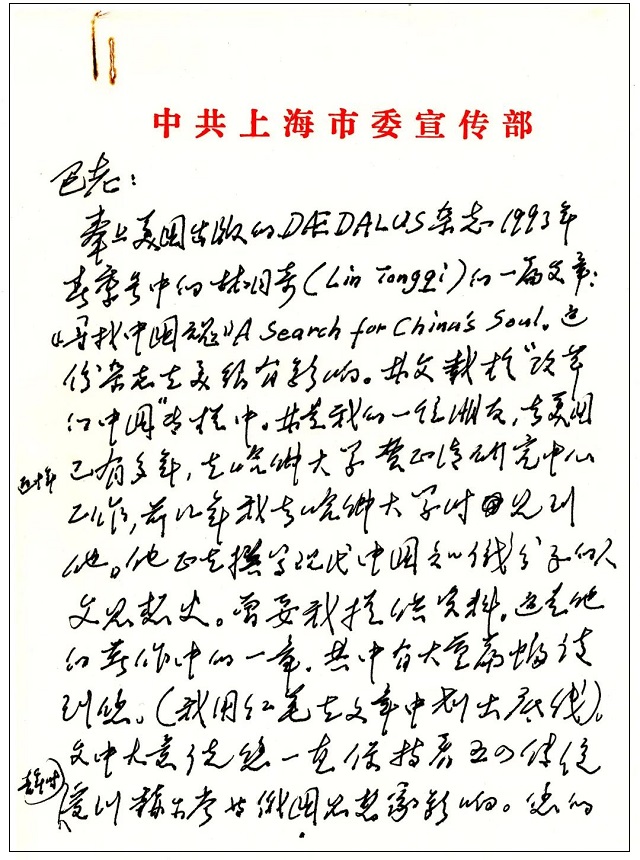 中共上海市委宣传部
巴老：
奉上美国出版的DÆDALUS杂志1993年
春季号中的林同奇(Lin Tongqi)的一篇文章：
《寻找中国魂》A Search for China's Soul。这
份杂志在美很有影响。其文载于"改革
的中国"专栏中。林是我的一位朋友，去美国
已有多年，在哈佛大学费正清研究中心
近十年
工作，前几年我去哈佛大学时见到
他。他正在撰写现代中国知识分子的人
文思想史。曾要我提供资料。这是他
的著作中的一章。其中有大量篇幅谈
到您。(我用红笔在文章中划出底线)。
文中大意说您一直保持着五四传统
青年时
受到与俄国思想家影响。您的